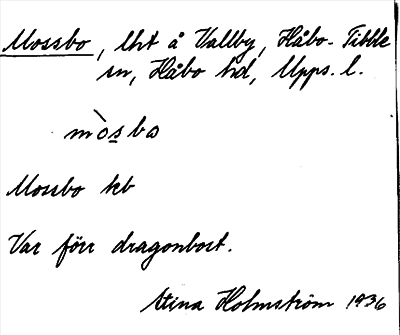 Mossbo, lht å Vallby, Håbo-Tibble
sn, Håbo hd, Upps. l.
mòsbo
Mossbo kb
Var förr dragonbost.
Stina Holmström 1936